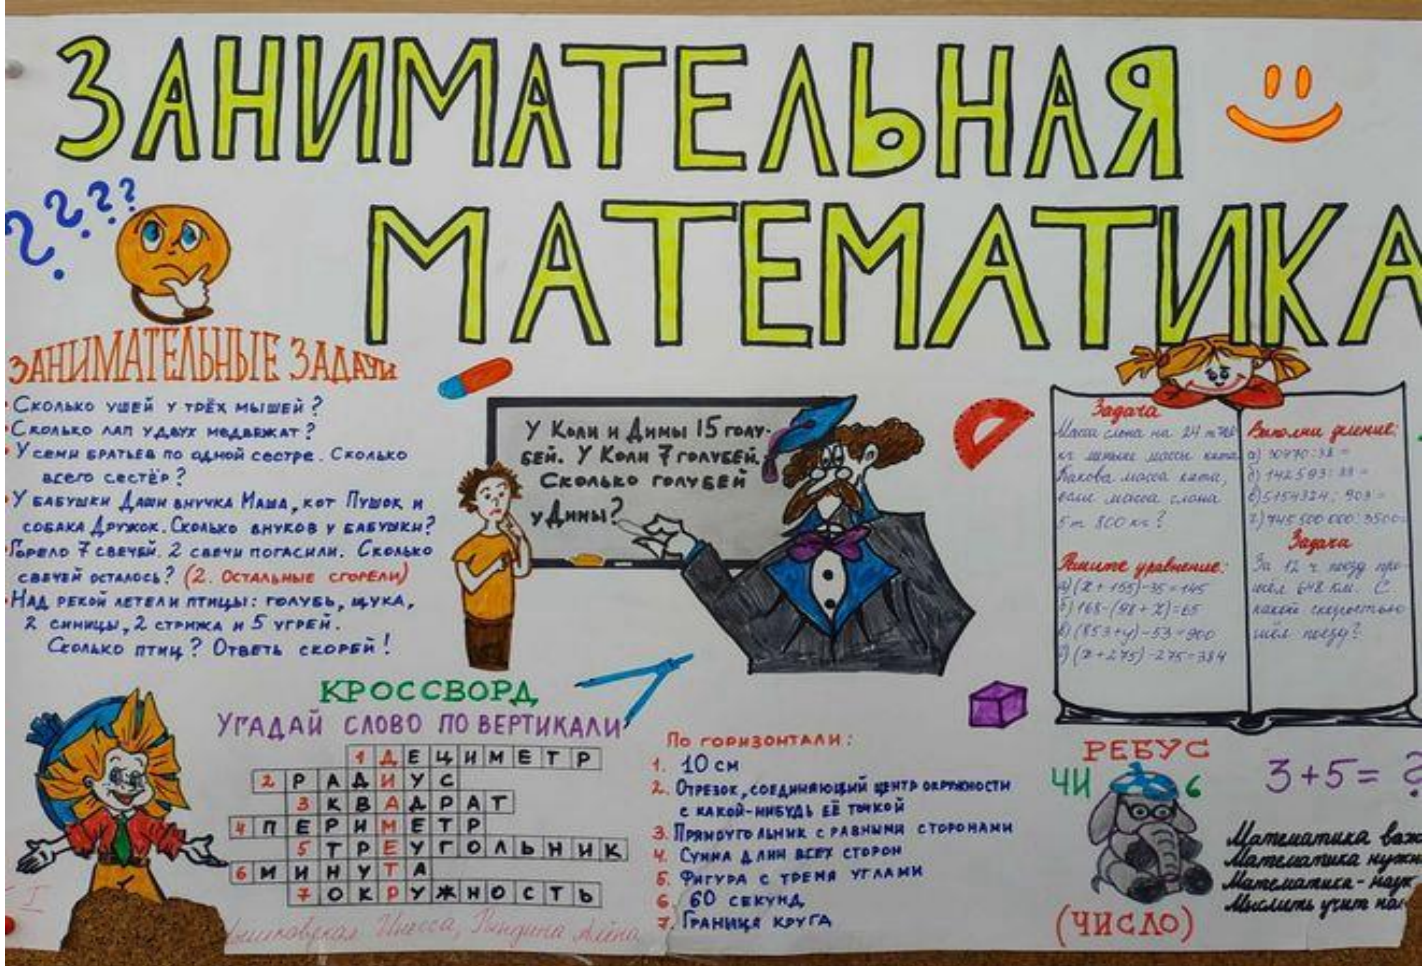 ЗАНИМАТЕЛЬНАЯ
МАТЕМАТИКА
????
ЗАНИМАТЕЛЬНЫЕ ЗАДАЧИ
• Сколько ушей у трёх мышей?
• Сколько лап у двух медвежат?
• У семи братьев по одной сестре. Сколько
всего сестёр?
• У бабушки Даши внучка Маша, кот Пушок и
собака Дружок. Сколько внуков у бабушки?
• Горело 7 свечей. 2 свечи погасили. Сколько
свечей осталось? (2. Остальные сгорели)
• Над рекой летели птицы: голубь, щука,
2 синицы, 2 стрижа и 5 угрей.
Сколько птиц? Ответь скорей!
У Коли и Димы 15 голу-
бей. У Коли 7 голубей.
Сколько голубей
у Димы?
Задача
Масса слона на 24 т
кг меньше массы кита.
Какова масса кита,
если масса слона
5 т 800 кг?
Решите уравнение:
а) (x+155)-35=145
б) 168-(98+x)=65
в) (853+y)-53=900
г) (x+275)-275=384
Выполни деление:
а) 30470:38=
б) 142593:33=
в) 5154324:903=
г) 745500000:3500=
Задача
За 12 ч поезд про-
шёл 648 км. С
какой скоростью
шёл поезд?
КРОССВОРД
УГАДАЙ СЛОВО ПО ВЕРТИКАЛИ
1 ДЕЦИМЕТР
2 РАДИУС
3 КВАДРАТ
4 ПЕРИМЕТР
5 ТРЕУГОЛЬНИК
6 МИНУТА
7 ОКРУЖНОСТЬ
Инесса, Алёна
По горизонтали:
1. 10 см
2. Отрезок, соединяющий центр окружности
с какой-нибудь её точкой
3. Прямоугольник с равными сторонами
4. Сумма длин всех сторон
5. Фигура с тремя углами
6. 60 секунд
7. Граница круга
РЕБУС
ЧИ 6
(ЧИСЛО)
3+5=?
Математика
Математика
Математика -
Мыслить учит